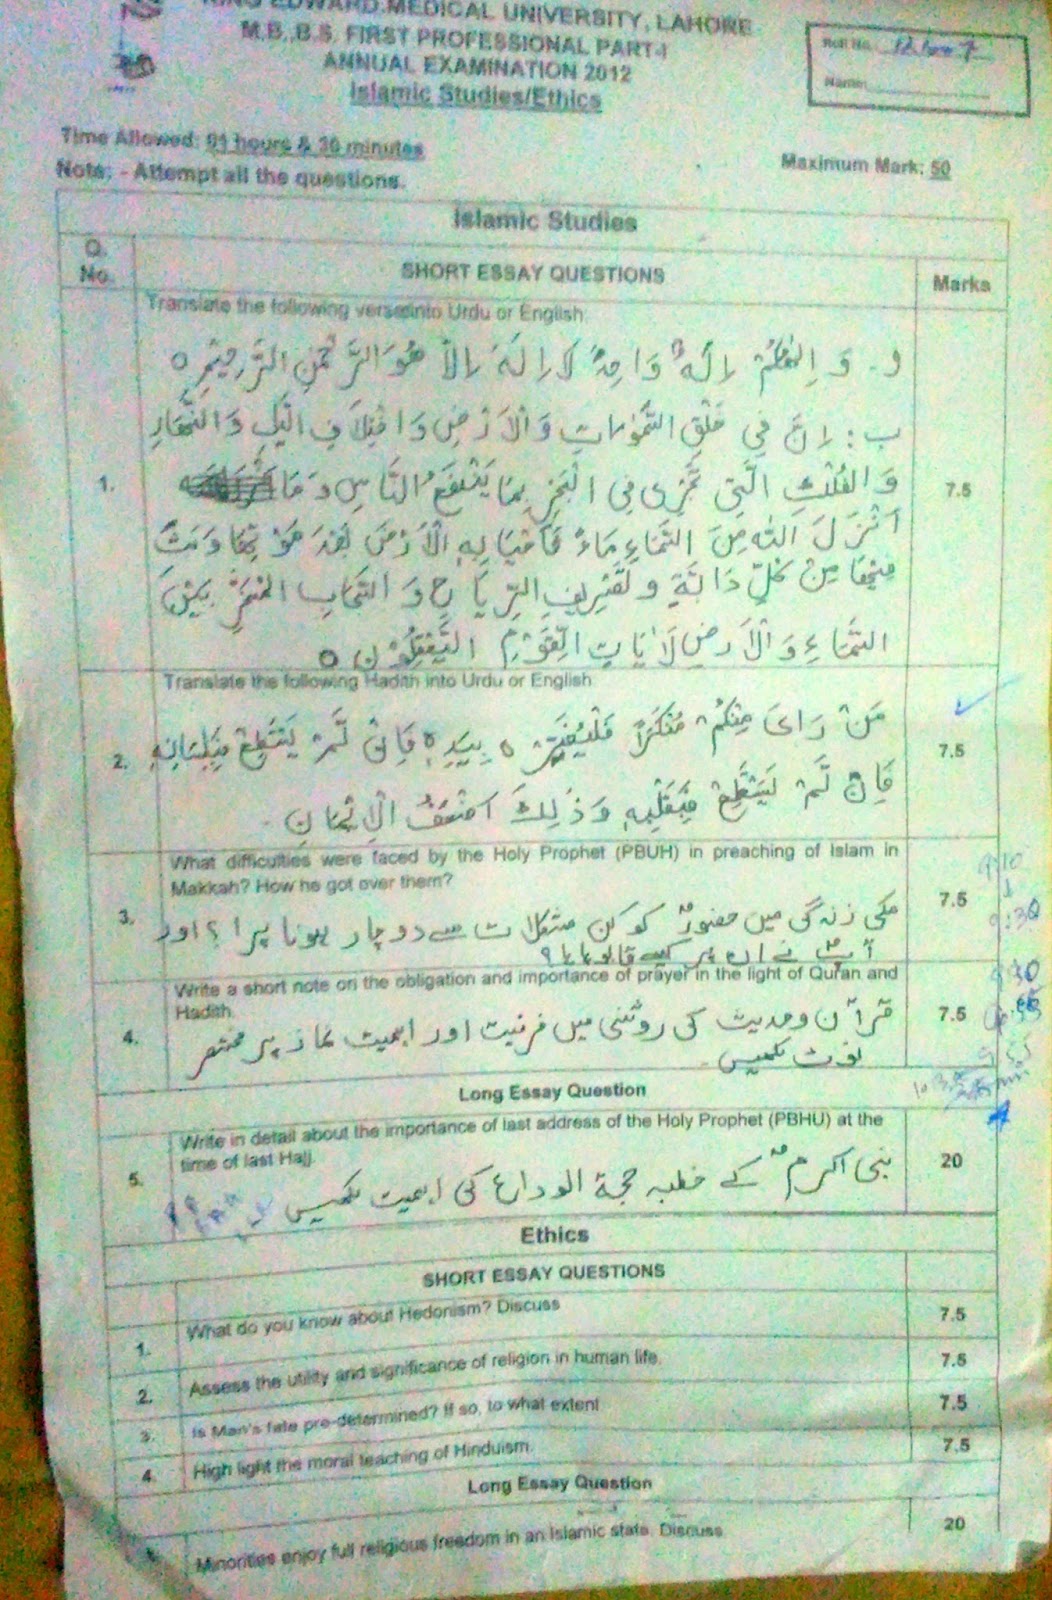 KING EDWARD MEDICAL UNIVERSITY, LAHORE
M.B.,B.S. FIRST PROFESSIONAL PART-I
ANNUAL EXAMINATION 2012
Islamic Studies/Ethics
Roll No.
Name:
Time Allowed: 01 hours & 30 minutes
Maximum Mark: 50
Note: - Attempt all the questions.
Islamic Studies
Q. No.
SHORT ESSAY QUESTIONS
Marks
Translate the following verses into Urdu or English
وَ اِلٰهُكُمْ اِلٰهٌ وَاحِدٌ لَا اِلٰهَ اِلَّا هُوَ الرَّحْمٰنُ الرَّحِيْمُ ٥
ب: اِنَّ فِي خَلْقِ السَّمٰوٰتِ وَالْاَرْضِ وَاخْتِلَافِ الَّيْلِ وَالنَّهَارِ
1.
وَالْفُلْكِ الَّتِي تَجْرِى فِى الْبَحْرِ بِمَا يَنْفَعُ النَّاسِ وَمَا
7.5
اَنْزَلَ اللّٰهُ مِنَ السَّمَاءِ مَاءً فَاَحْيَا بِهِ الْاَرْضَ بَعْدَ مَوْتِهَا وَبَثَّ
فِيْهَا مِنْ كُلِّ دَابَّةٍ وَتَصْرِيْفِ الرِّيَاحِ وَالسَّحَابِ الْمُسَخَّرِ بَيْنَ
السَّمَاءِ وَالْاَرْضِ لَاٰيَاتٍ لِّقَوْمٍ الْيَّعْقِلُوْنَ ٥
Translate the following Hadith into Urdu or English
2.
مَنْ رَاىَ مِنْكُمْ مُنْكَرًا فَلْيُغَيِّرْهُ بِيَدِهِ فَاِنْ لَّمْ يَسْتَطِعْ فَبِلِسَانِهٖ
7.5
فَاِنْ لَّمْ يَسْتَطِعْ فَبِقَلْبِهٖ وَذٰلِكَ اَضْعَفُ الْاِيْمَانِ
What difficulties were faced by the Holy Prophet (PBUH) in preaching of Islam in
Makkah? How he got over them?
3.
مکی زندگی میں حضورؐ کو کن مشکلات سے دوچار ہونا پڑا ؟ اور
7.5
آپؐ نے ان پر کیسے قابو پایا ؟
Write a short note on the obligation and importance of prayer in the light of Quran and
Hadith.
4.
قرآن و حدیث کی روشنی میں فرضیت اور اہمیت نماز پر مختصر
7.5
نوٹ لکھیں
Long Essay Question
Write in detail about the importance of last address of the Holy Prophet (PBHU) at the
time of last Hajj.
5.
نبی اکرمؐ کے خطبہ حجۃ الوداع کی اہمیت لکھیں
20
Ethics
SHORT ESSAY QUESTIONS
1.
What do you know about Hedonism? Discuss
7.5
2.
Assess the utility and significance of religion in human life.
7.5
3.
Is Man's fate pre-determined? If so, to what extent
7.5
4.
High light the moral teaching of Hinduism.
7.5
Long Essay Question
Minorities enjoy full religious freedom in an Islamic state. Discuss
20